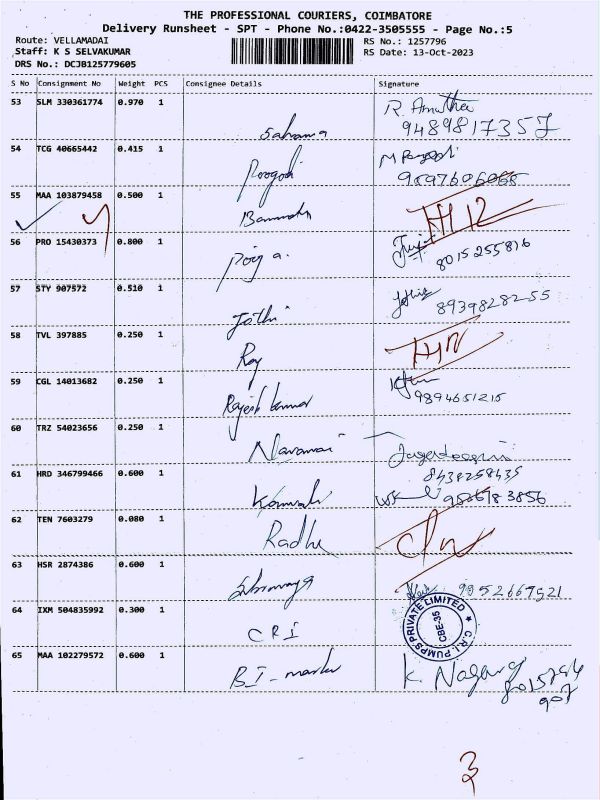 THE PROFESSIONAL COURIERS, COIMBATORE
Delivery Runsheet - SPT - Phone No.:0422-3505555 - Page No.:5
Route: VELLAMADAI
Staff: K S SELVAKUMAR
DRS No.: DCJB125779605
RS No.: 1257796
RS Date: 13-Oct-2023
S No Consignment No Weight PCS Consignee Details Signature
53 SLM 330361774 0.970 1 Sahana R. Amutha
9489817357
54 TCG 40665442 0.415 1
55 MAA 103879458 0.500 1
56 PRO 15430373 0.800 1
8015255816
57 STY 907572 0.510 1 Jothi
8939828255
58 TVL 397885 0.250 1 Roy
59 CGL 14013682 0.250 1 Rajesh kumar
9894651215
60 TRZ 54023656 0.250 1
8438258435
61 HRD 346799466 0.600 1
62 TEN 7603279 0.080 1 Radhe
63 HSR 2874386 0.600 1
64 IXM 504835992 0.300 1 CRI
C.R.I. PUMPS PRIVATE LIMITED
CBE-35
65 MAA 102279572 0.600 1 K. Nagaraj
3